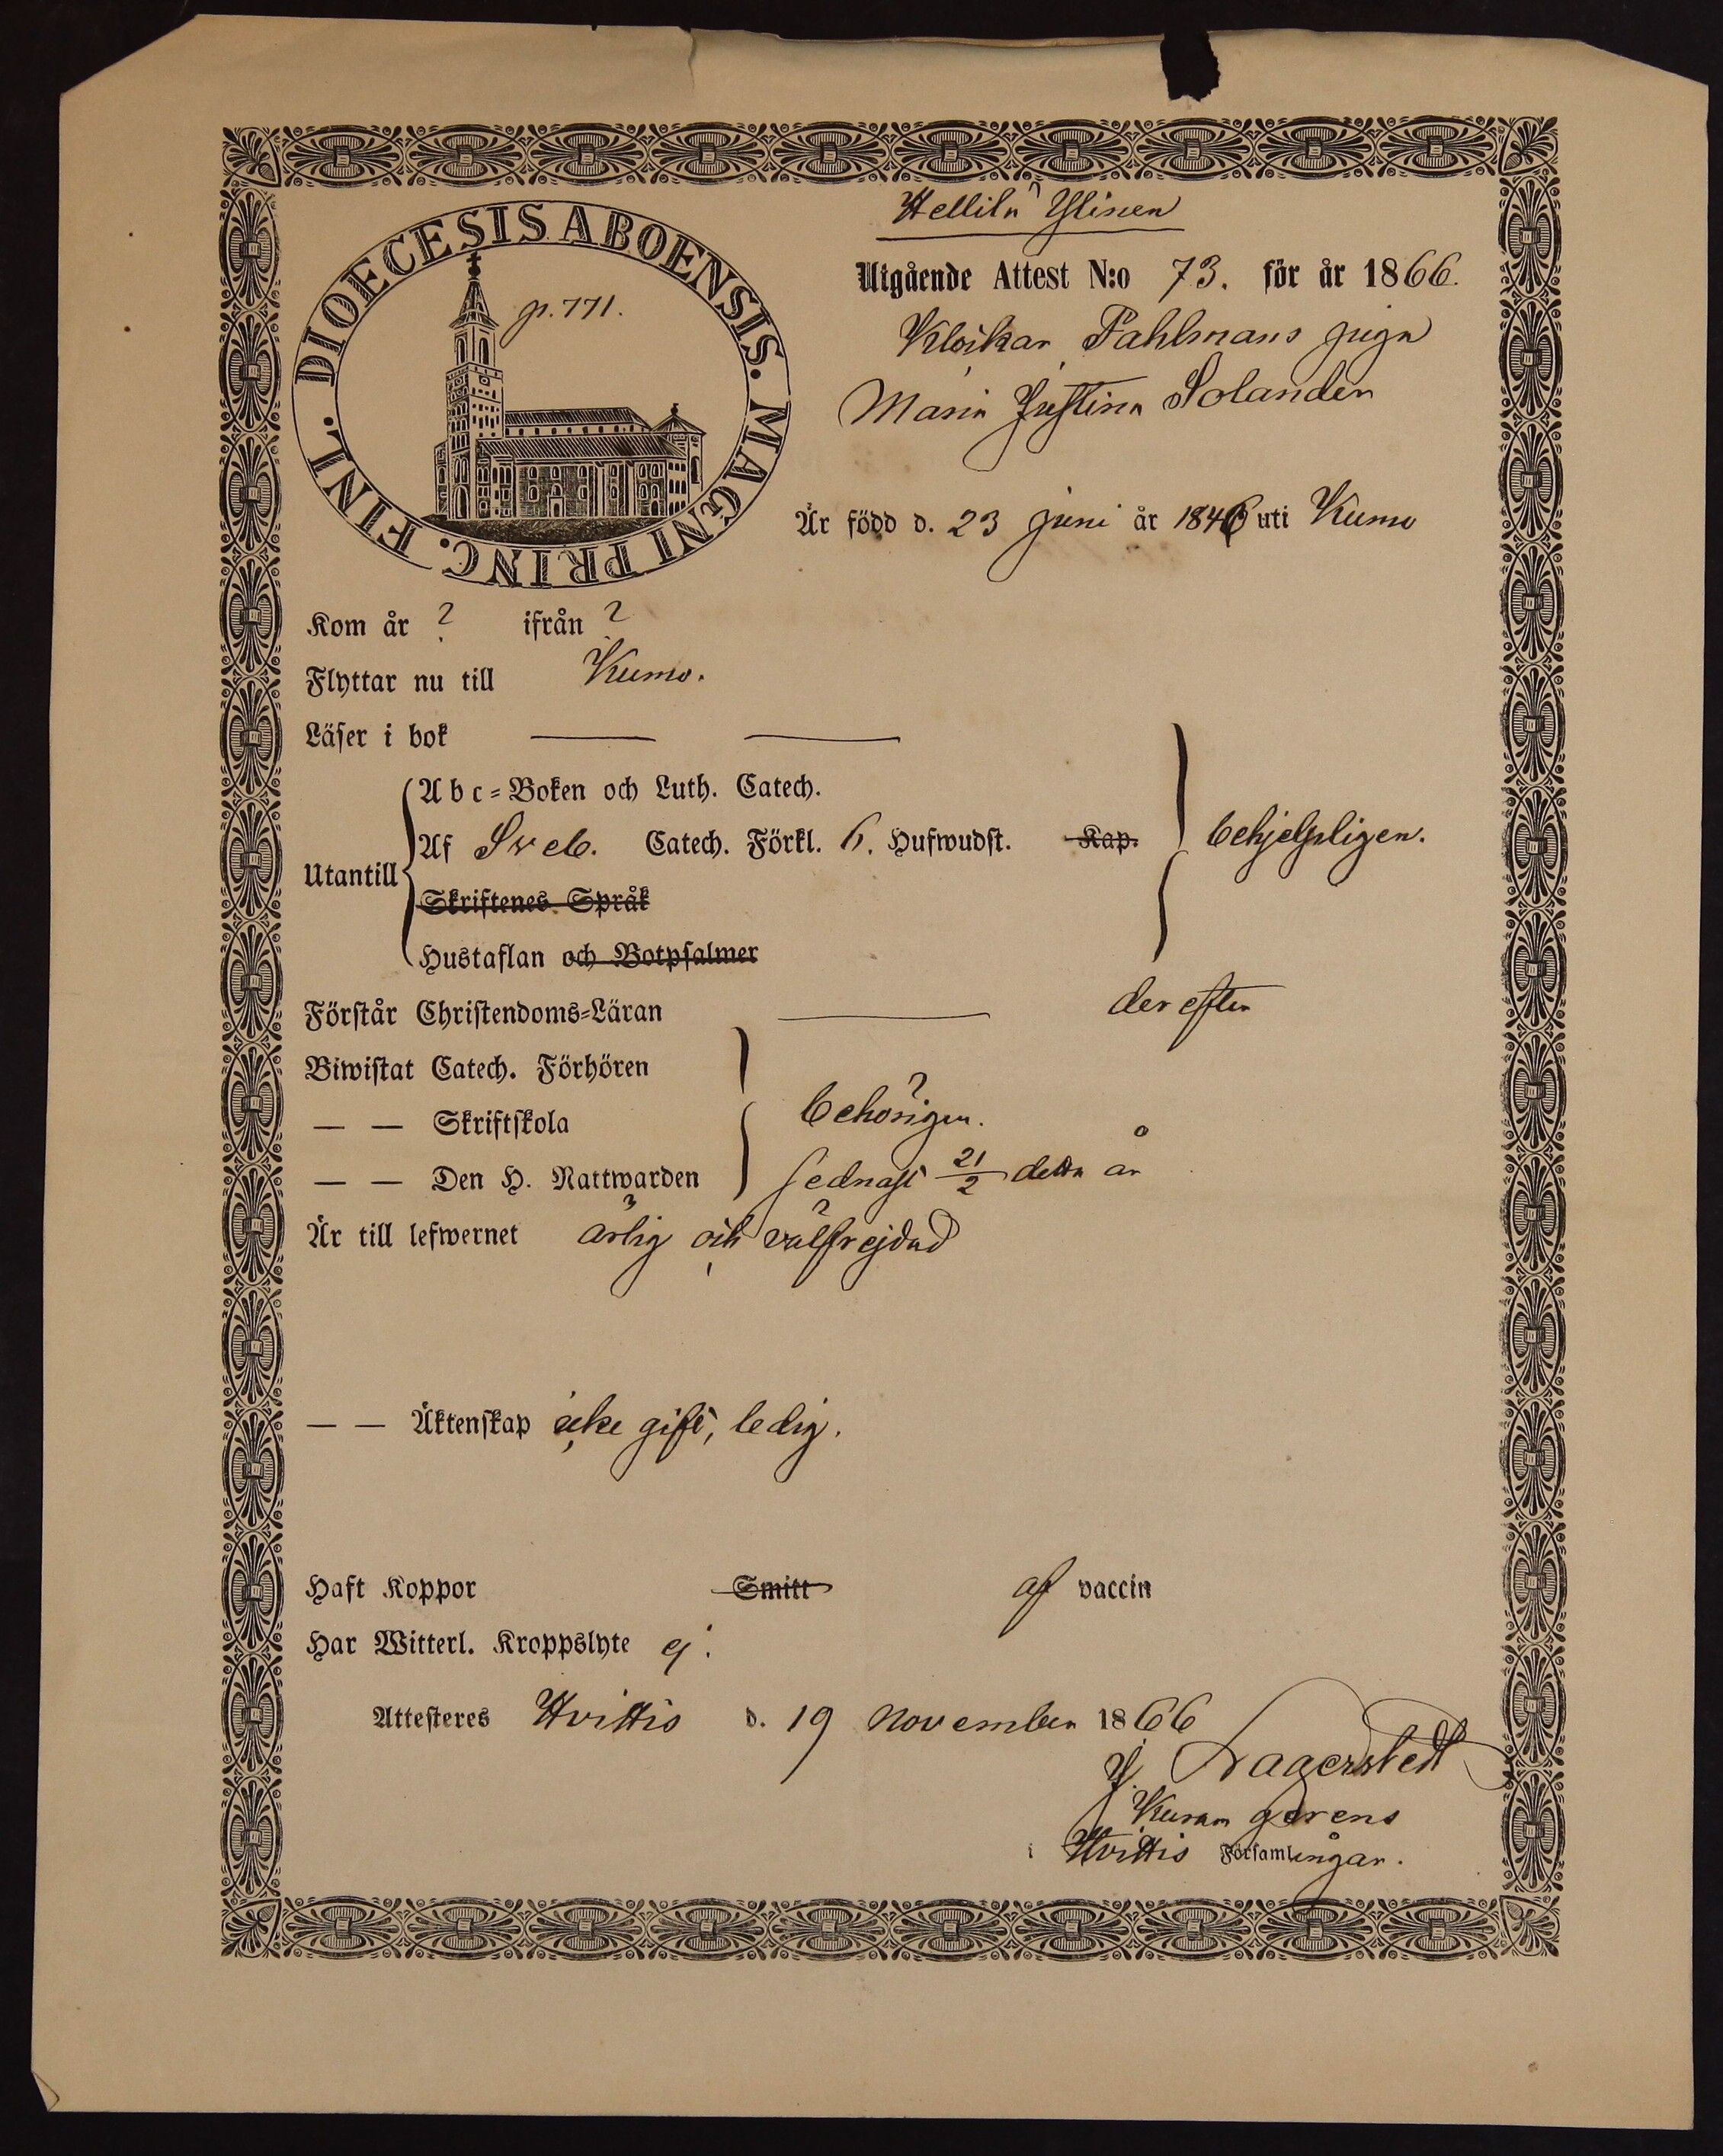 Hellilä Ylinen
DIOECESIS ABOENSIS. MAGNI PRINC. FINL.
p. 771.
Utgående Attest N:o 73. för år 1866.
Klockar Pahlmans piga
Maria Justina Solander
Är född d. 23 juni år 1846 uti Kumo
Kom år ? ifrån ?
Flyttar nu till Kumo.
Läser i bok
Utantill
Abc=Boken och Luth. Catech.
Af Sveb. Catech. Förkl. 6. Hufwudst. Kap. behjelpligen.
Skriftenes Språk
Hustaflan och Botpsalmer
Förstår Christendoms=Läran derefter
Biwistat Catech. Förhören
— — Skriftskola behörigen.
— — Den H. Nattwarden sednast 21/2 detta år
Är till lefwernet ärlig och välfrejdad
— — Äktenskap icke gift, ledig.
Haft Koppor Smitt af vaccin
Har Witterl. Kroppslyte ej.
Attesteres Hvittis d. 19 november 1866
J. Lagerstedt
gerens
i Hvittis Församlingar.